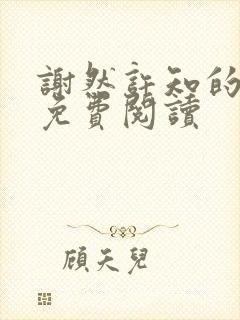 謝然許知的
免費閱讀
顔天兒